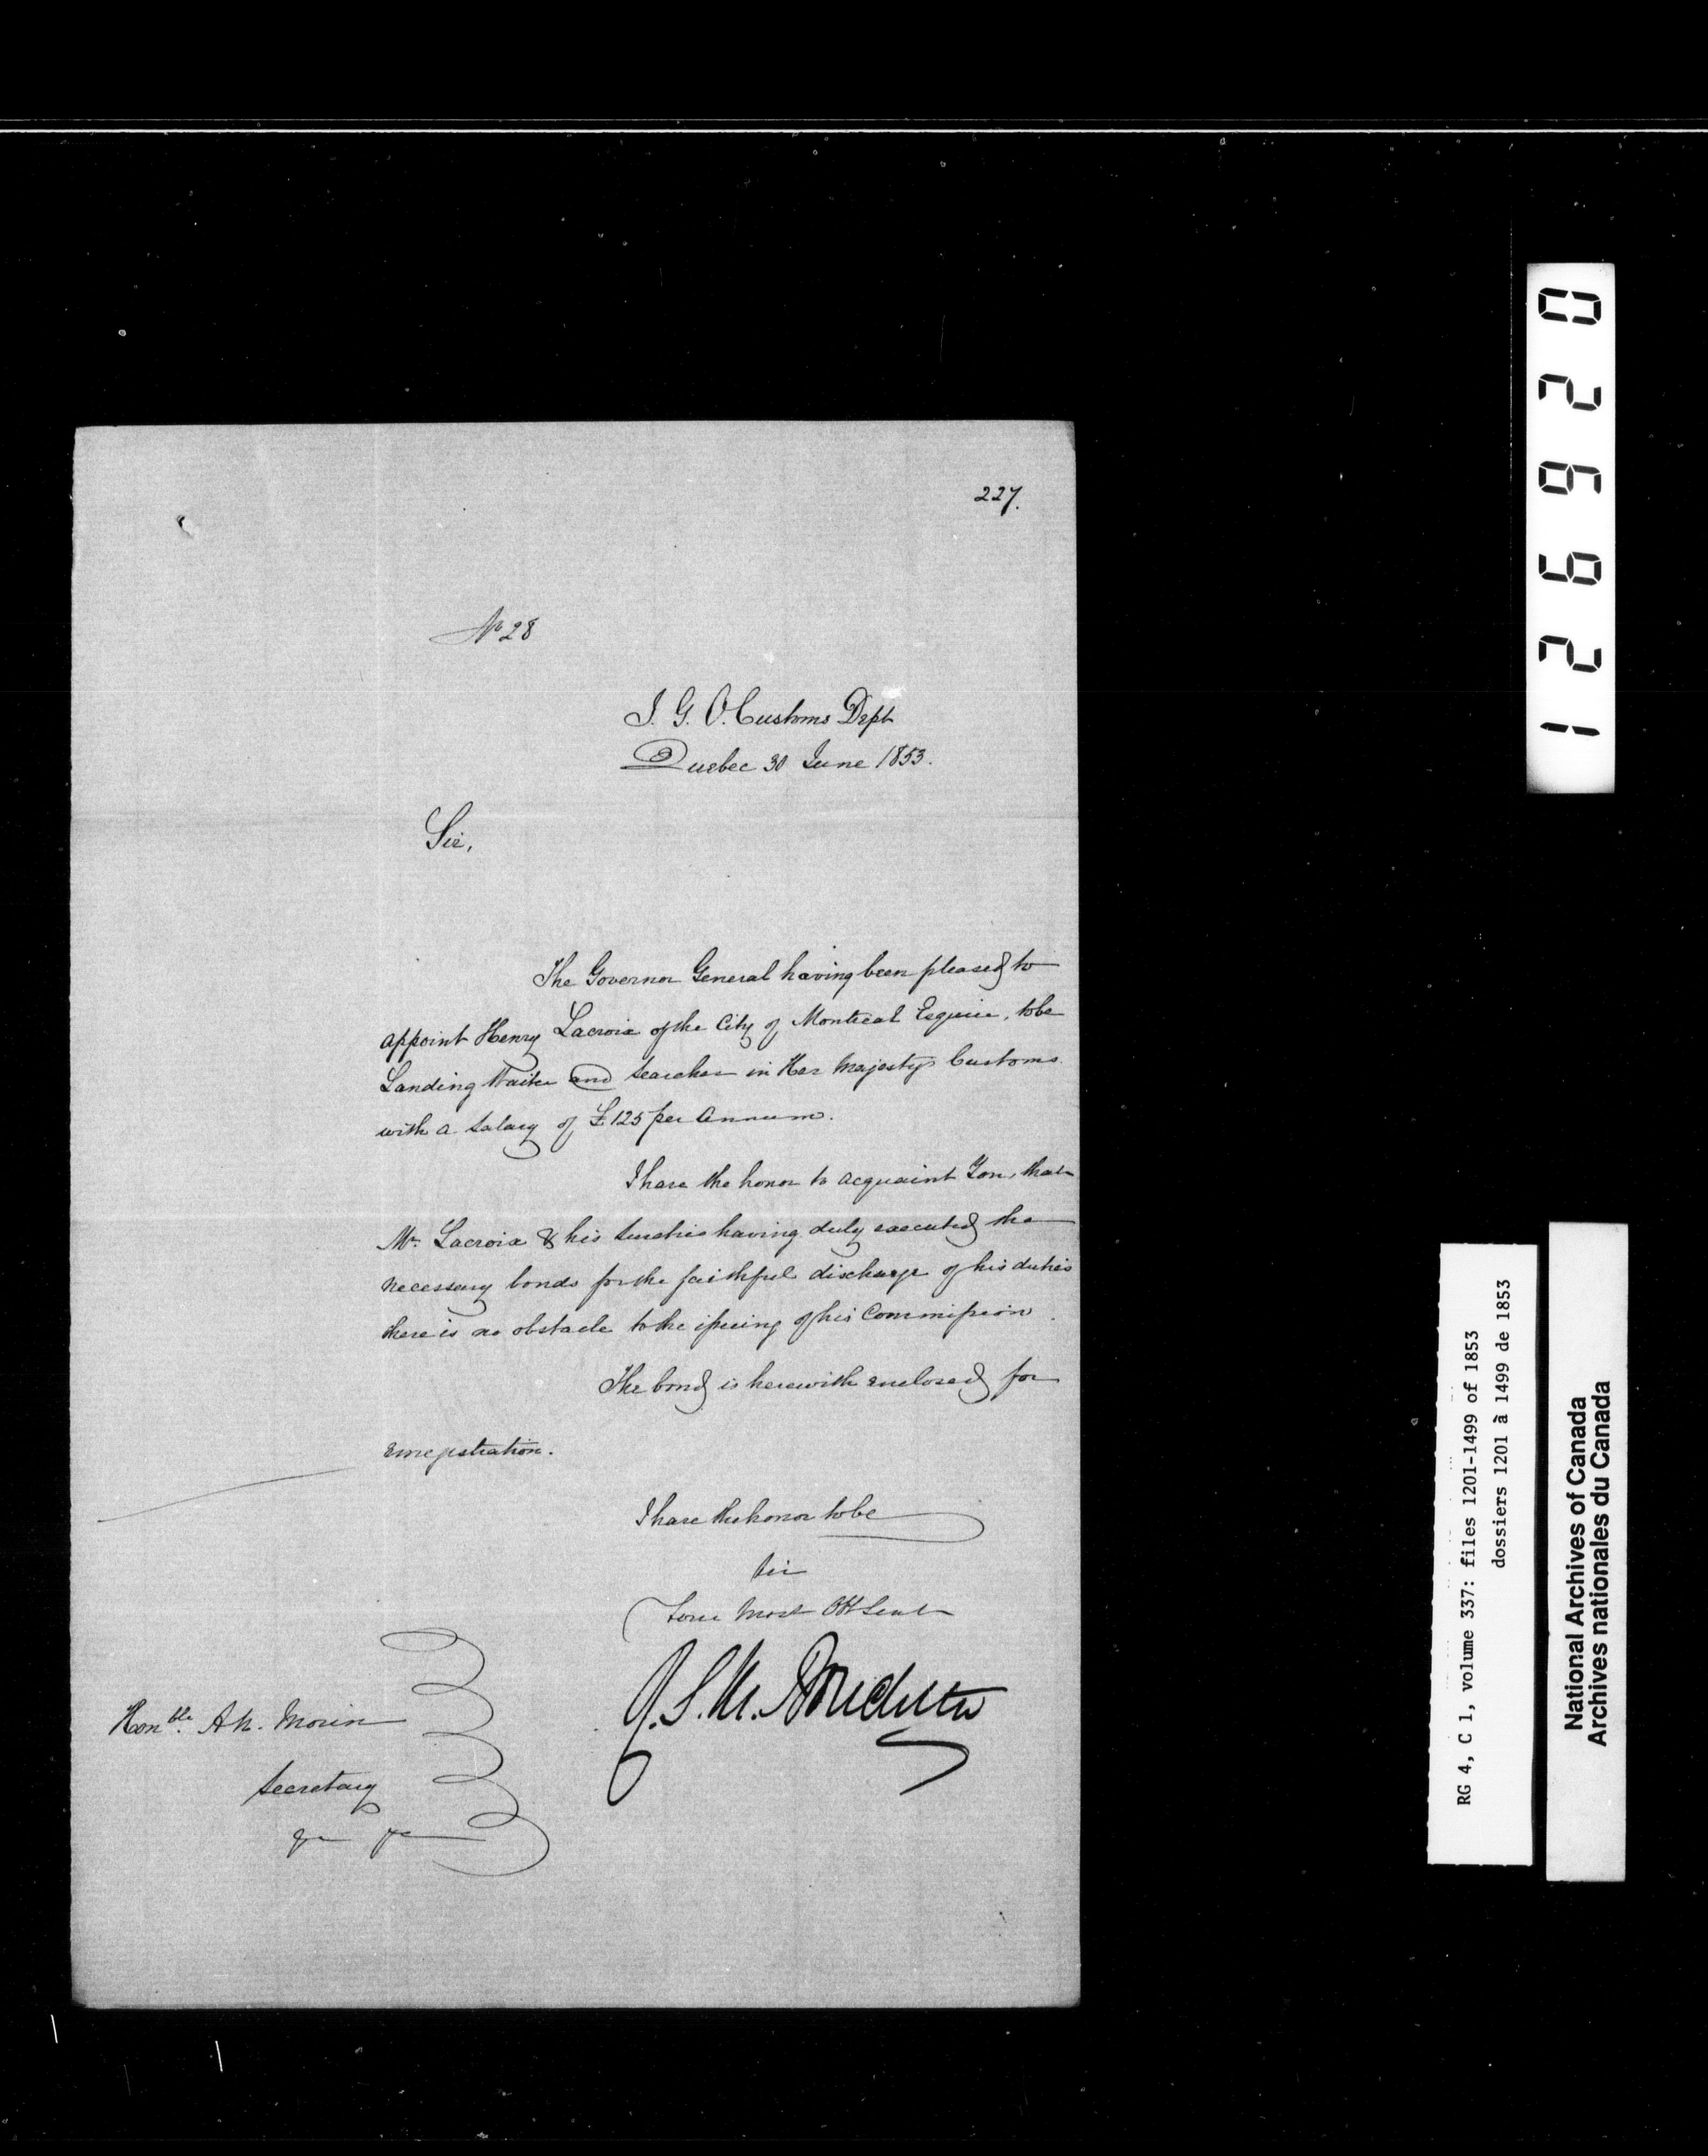 227.
No 28
I. G. O. Customs Dept
Quebec 30 June 1853.
Sir,
The Governor General having been pleased to
appoint Henry Lacroix of the City of Montreal Esquire, to be
Landing Waiter and Searcher in Her Majesty's Customs
with a Salary of £125 per Annum.
I have the honor to acquaint You, that
Mr. Lacroix & his Sureties having duly executed the
necessary bonds for the faithful discharge of his duties
there is no obstacle to the issuing of his Commission.
The bond is herewith enclosed for
enregistration.
I have the honor to be
Sir
Your Most Ob Servt
Honble. A N. Morin
Secretary
126920
RG 4, C 1, volume 337: files 1201-1499 of 1853
dossiers 1201 à 1499 de 1853
National Archives of Canada
Archives nationales du Canada